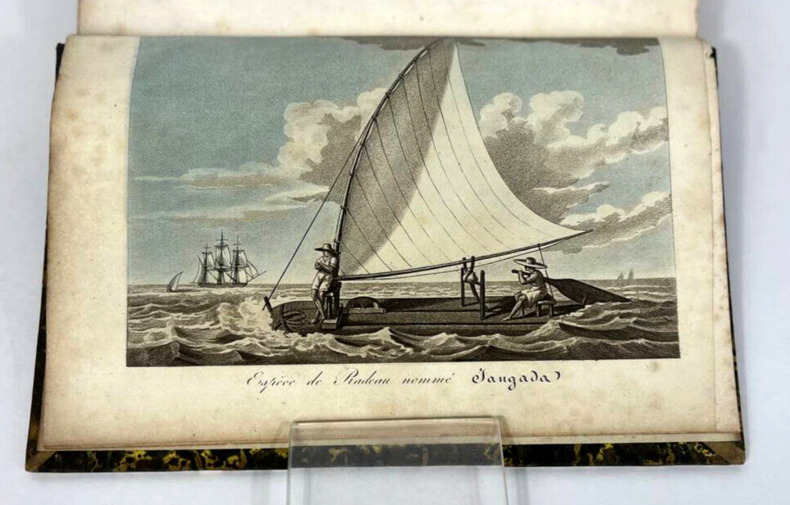 Espèce de Radeau nommé Jangada